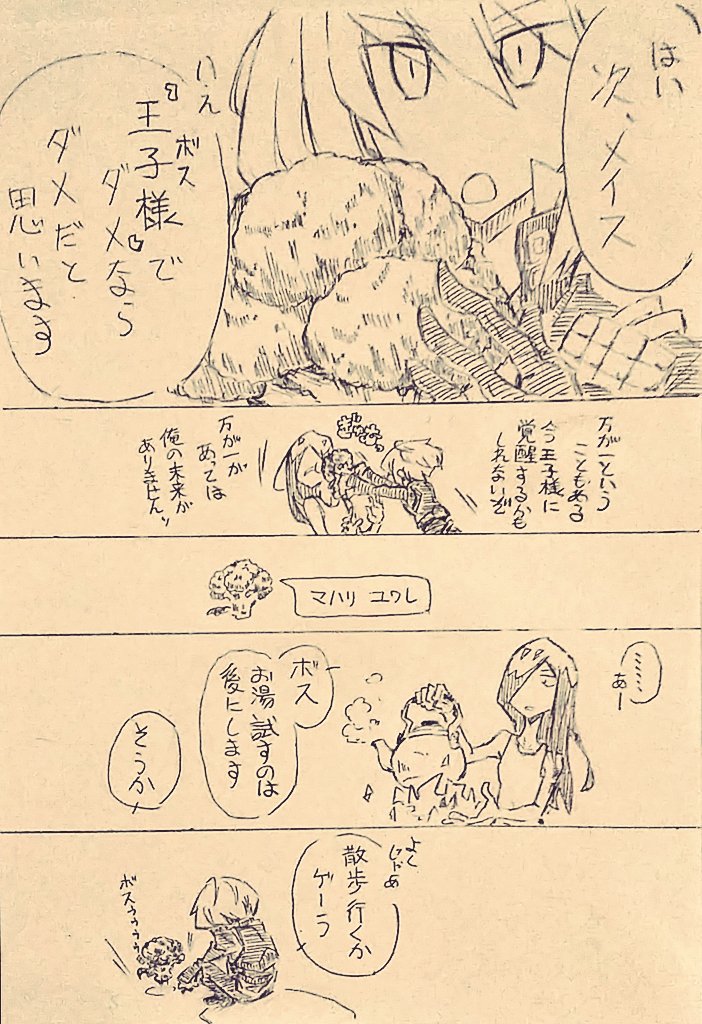 はい
次、メイス
いえ
『王子様で
ボス
ダメなら』
ダメだと
思います
万が一という
こともある
今王子様に
覚醒するかも
しれないぞ
ぎゅむっ
万が一が
あっては
俺の未来が
ありません
マハリ ユワレ
……
あー
ボス
お湯試すのは
後にします
そうか
よし
じゃあ
散歩行くか
ゲーラ
ボスゥゥゥゥ